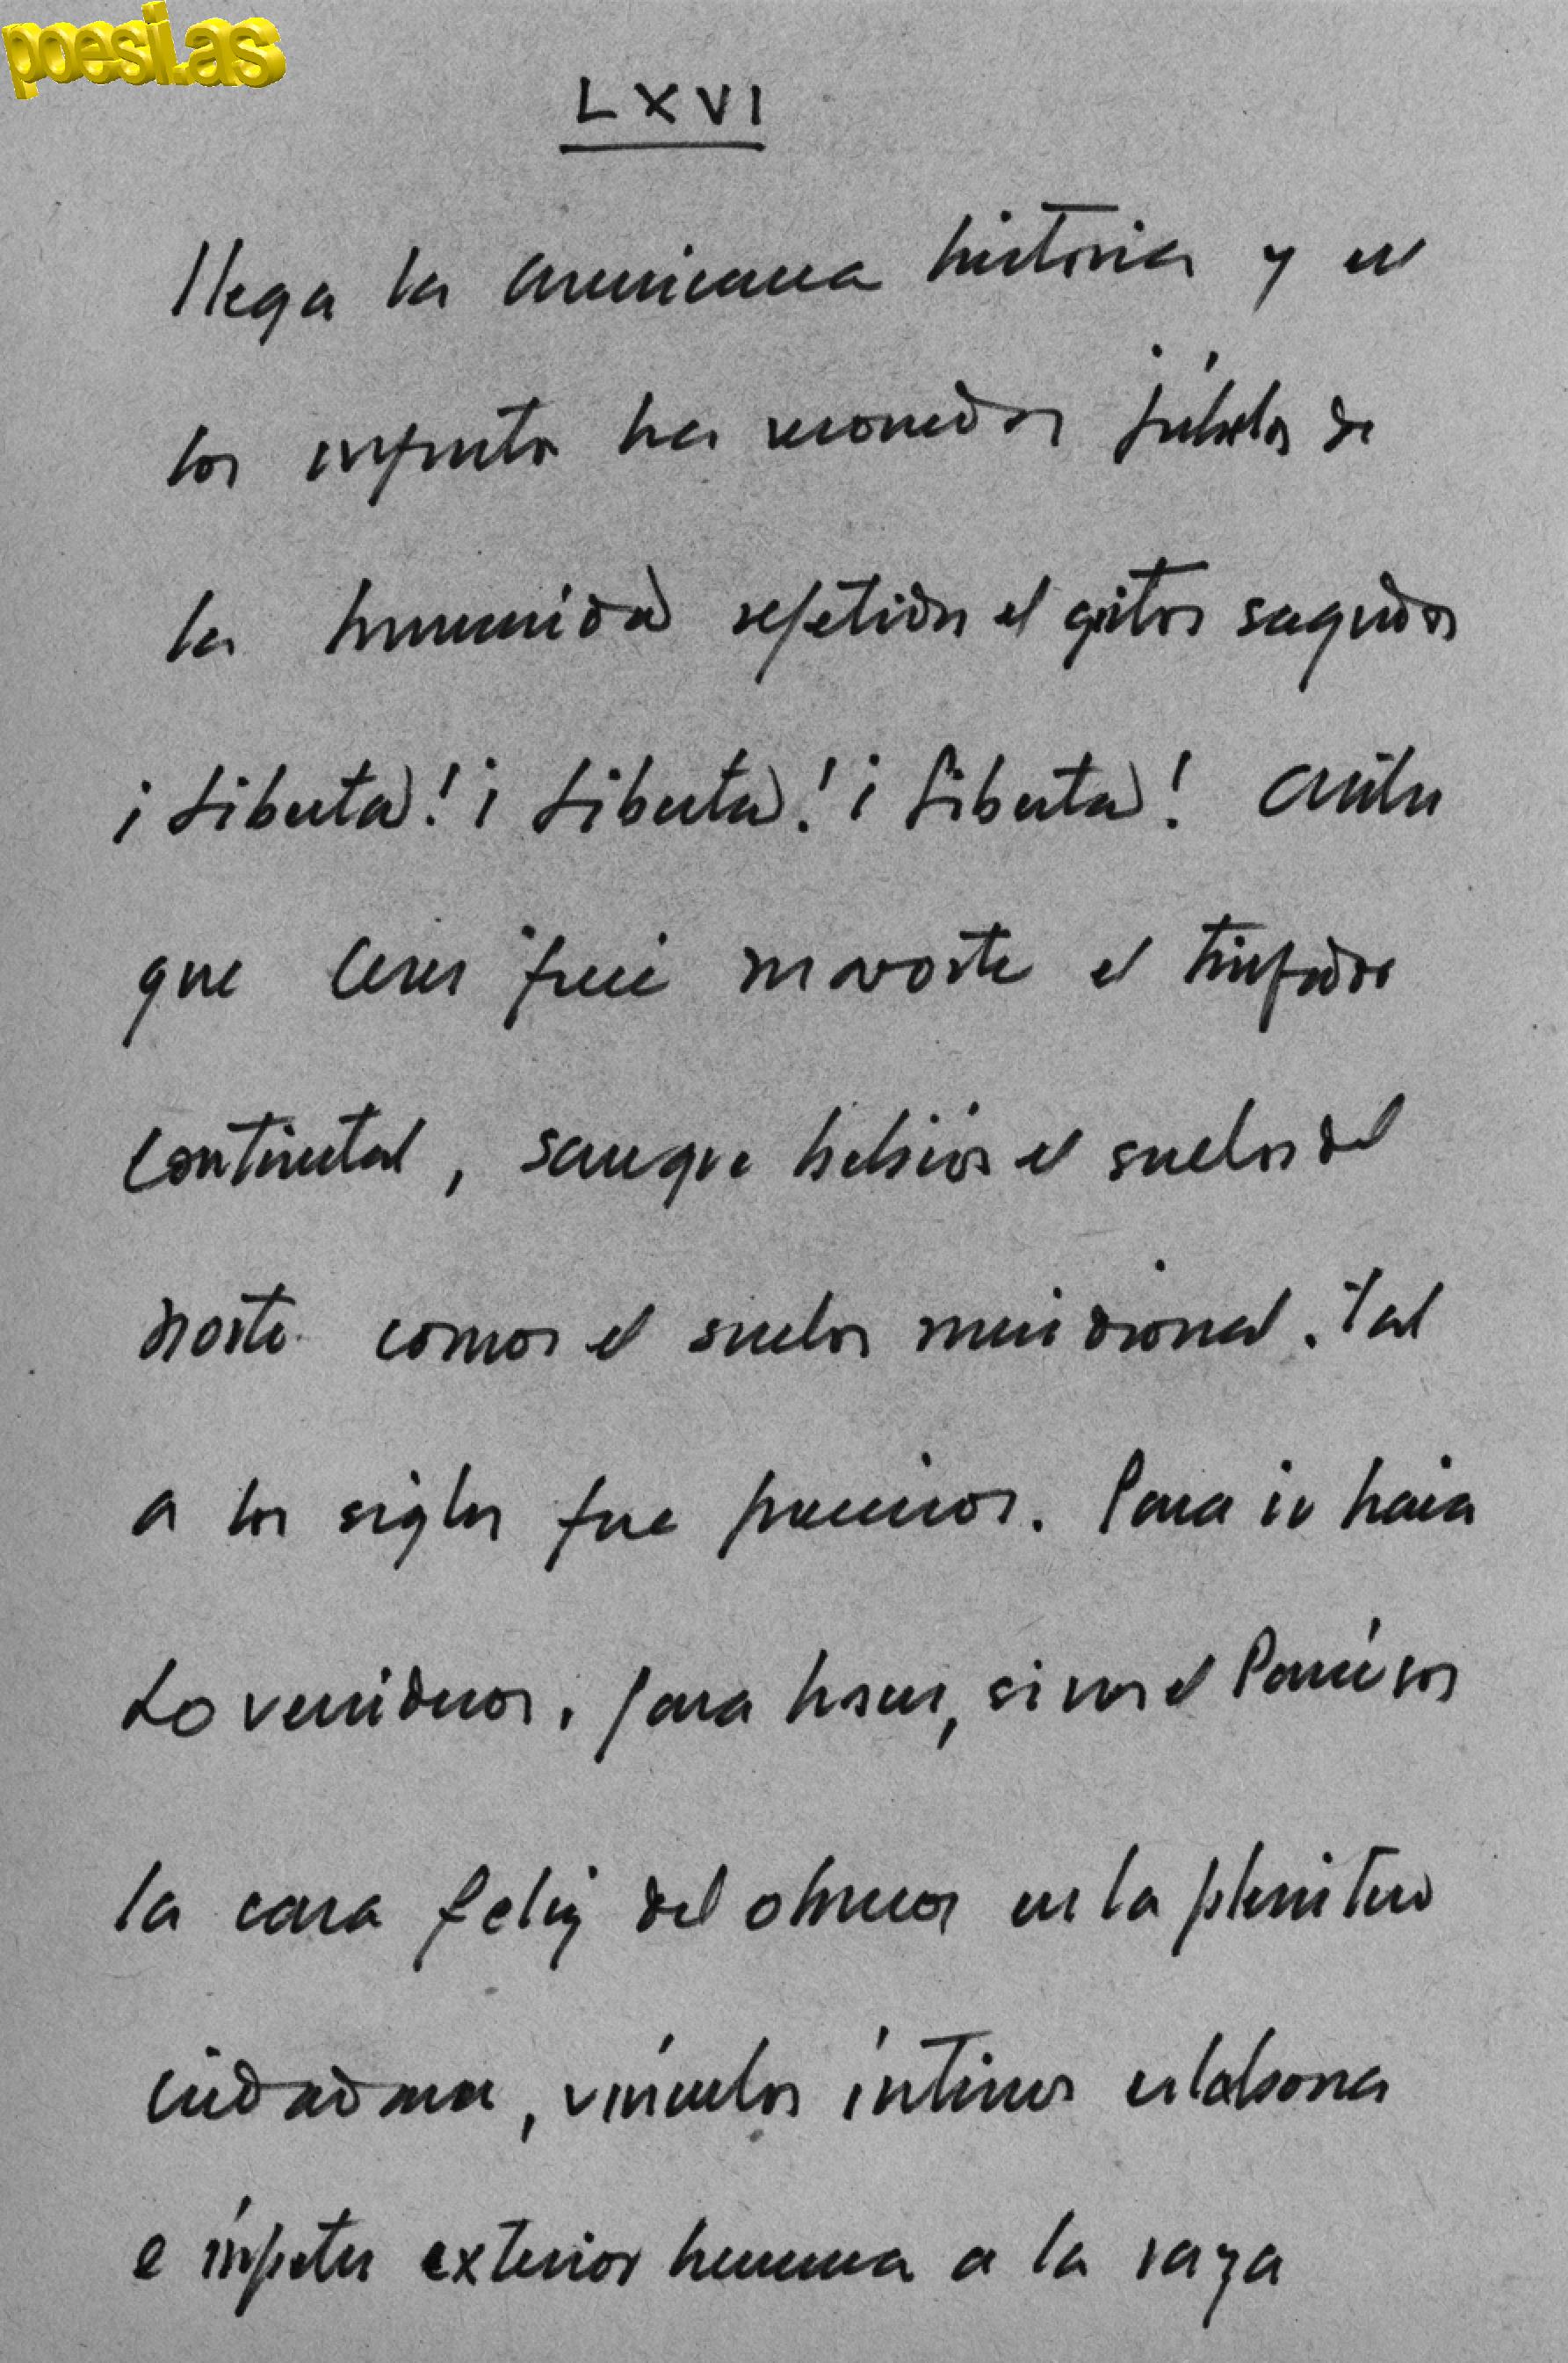 poesi.as
LXVI
llega la americana historia y en
lo infinito ha resonado júbilo de
la humanidad repetido el grito sagrado
¡Libertad! ¡Libertad! ¡Libertad! Antes
que Ceres fue Mavorte el triunfador
Continental, sangre bebió el suelo del
Norte como el suelo meridional. Tal
a los siglos fue preciso. Para ir hacia
Lo venidero, para hacer, si no el Paraíso
la cara feliz del obrero en la plenitud
ciudadana, vínculo íntimo eslabona
e ímpetu exterior hermana a la raza